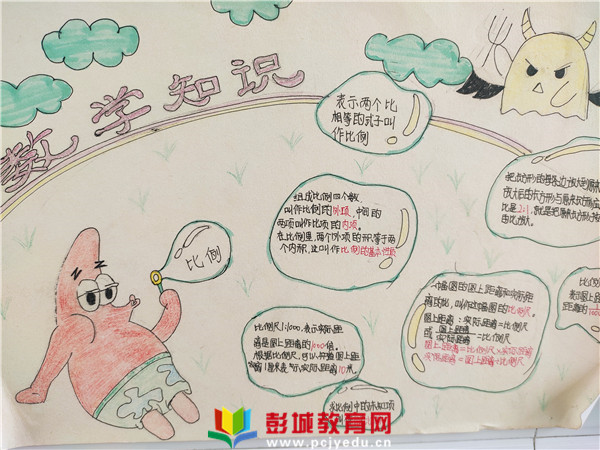 数学知识
表示两个比
相等的式子叫
作比例
组成比例四个数,
叫作比例的外项,中间的
两项叫作比项的内项。
在比例里,两个外项的积等于两
个内积,这叫作比例的基本性质
比例
把长方形的每条边放大到原来
放大后的长方形与原来长方形
比是2:1,就是把原长方形按
的比放大。
一幅图的图上距离和实际距
离的比,叫作这幅图的比例尺。
图上距离:实际距离=比例尺
或 图上距离
实际距离 =比例尺
图上距离=比例尺×实际距离
实际距离=图上距离÷比例尺
比例尺1:1000,表示实际距
离是图上距离的1000倍。
根据比例尺,可以知道图上距
离1厘米表示实际距离10米。
求比例中的未知项
比例
表示图上
距离的
彭城教育网
www.pcjyedu.cn